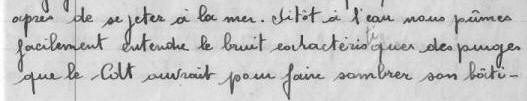 apres de se jeter à la mer. Sitôt à l'eau nous pûmes
facilement entendre le bruit carhactéristiques des purges
que le Cdt ouvrait pour faire sombrer son bâti-